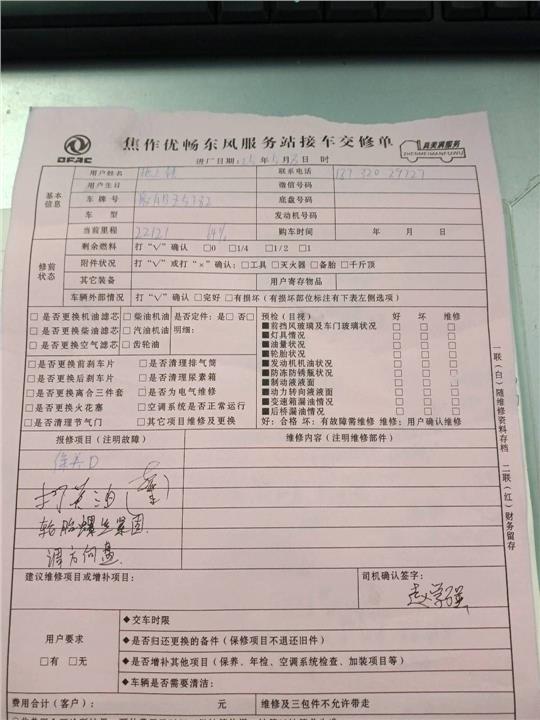 DFAC
焦作优畅东风服务站接车交修单
真美满服务
ZHENMEIMANFUWU
进厂日期： 年 5 月 日 时
基本信息
用户姓名 联系电话
用户生日 微信号码
车牌号 底盘号
车型 发动机号码
当前里程 22121 购车时间 年 月 日
修前状态
剩余燃料 打“√”确认 □0 □1/4 □1/2 □1
附件状况 打“√”或打“×”确认：□工具 □灭火器 □备胎 □千斤顶
其它装备 用户寄存物品
车辆外部情况 打“√”确认 □完好 □有损坏（有损坏部位标注有下表左侧选项）
□是否更换机油滤芯 □柴油机油 是否定件：是□ 否□
□是否更换柴油滤芯 □汽油机油 明细：
□是否更换空气滤芯 □齿轮油
□是否更换前刹车片 □是否清理排气筒
□是否更换后刹车片 □是否清理尿素箱
□是否更换离合三件套 □是否为电气维修
□是否更换火花塞 □空调系统是否正常运行
□是否清理节气门 □其它项目维修及更换
预检（目视） 好 坏 维修
■前挡风玻璃及车门玻璃状况 □ □ □
■灯具情况 □ □ □
■油量状况 □ □ □
■轮胎状况 □ □ □
■发动机机油状况 □ □ □
■防冻防锈瓶状况 □ □ □
■制动液液面 □ □ □
■动力转向液液面 □ □ □
■变速箱漏油情况 □ □ □
■后桥漏油情况 □ □ □
好：合格 坏：有故障需维修 维修：用户确认维修
报修项目（注明故障） 维修内容（注明维修部件）
打黄油
轮胎螺丝紧固.
调方向盘
建议维修项目或增补项目：
司机确认签字：
赵学强
用户要求
□有 □无
◆交车时限
◆是否归还更换的备件（保修项目不退还旧件）
◆是否增补其他项目（保养、年检、空调系统检查、加装项目等）
◆车辆是否需要清洁：
费用合计（客户）： 元 维修及三包件不允许带走
一联（白）随维修资料存档 二联（红）财务留存